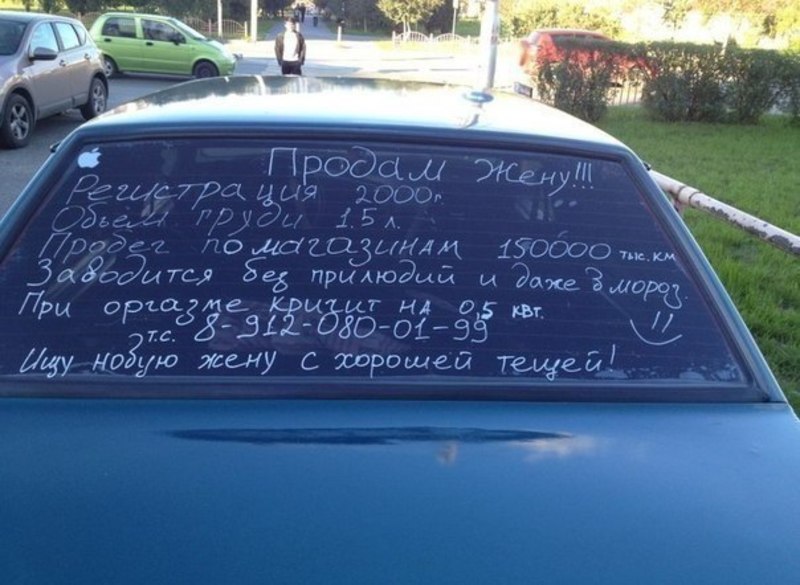 Продам жену!!!
Регистрация 2000г.
Объем груди 1.5 л.
Пробег по магазинам 150000 тыс. км
Заводится без прилюдий и даже в мороз.
При оргазме кричит на 0,5 квт.
т.с. 8-912-080-01-99
Ищу новую жену с хорошей тещей!